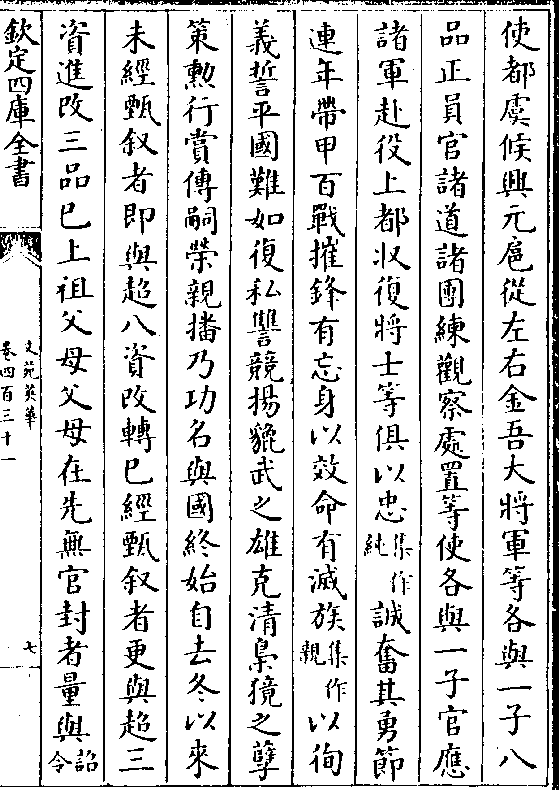 使都虞候興元扈從左右金吾大將軍等各與一子八
品正員官諸道諸團練觀察處置等使各與一子官應
諸軍赴役上都收復將士等俱以忠集作純誠奮其勇節
連年帶甲百戰摧鋒有忘身以效命有滅族集作親以徇
義誓平國難如復私讐競揚貔武之雄克清梟獍之孽
策勲行賞傳嗣榮親播乃功名與國終始自去冬以來
未經甄叙者即與超八資改轉已經甄叙者更與超三
資進改三品已上祖父母父母在先無官封者量與詔令
欽定四庫全書
文苑英華
卷四百三十一
七